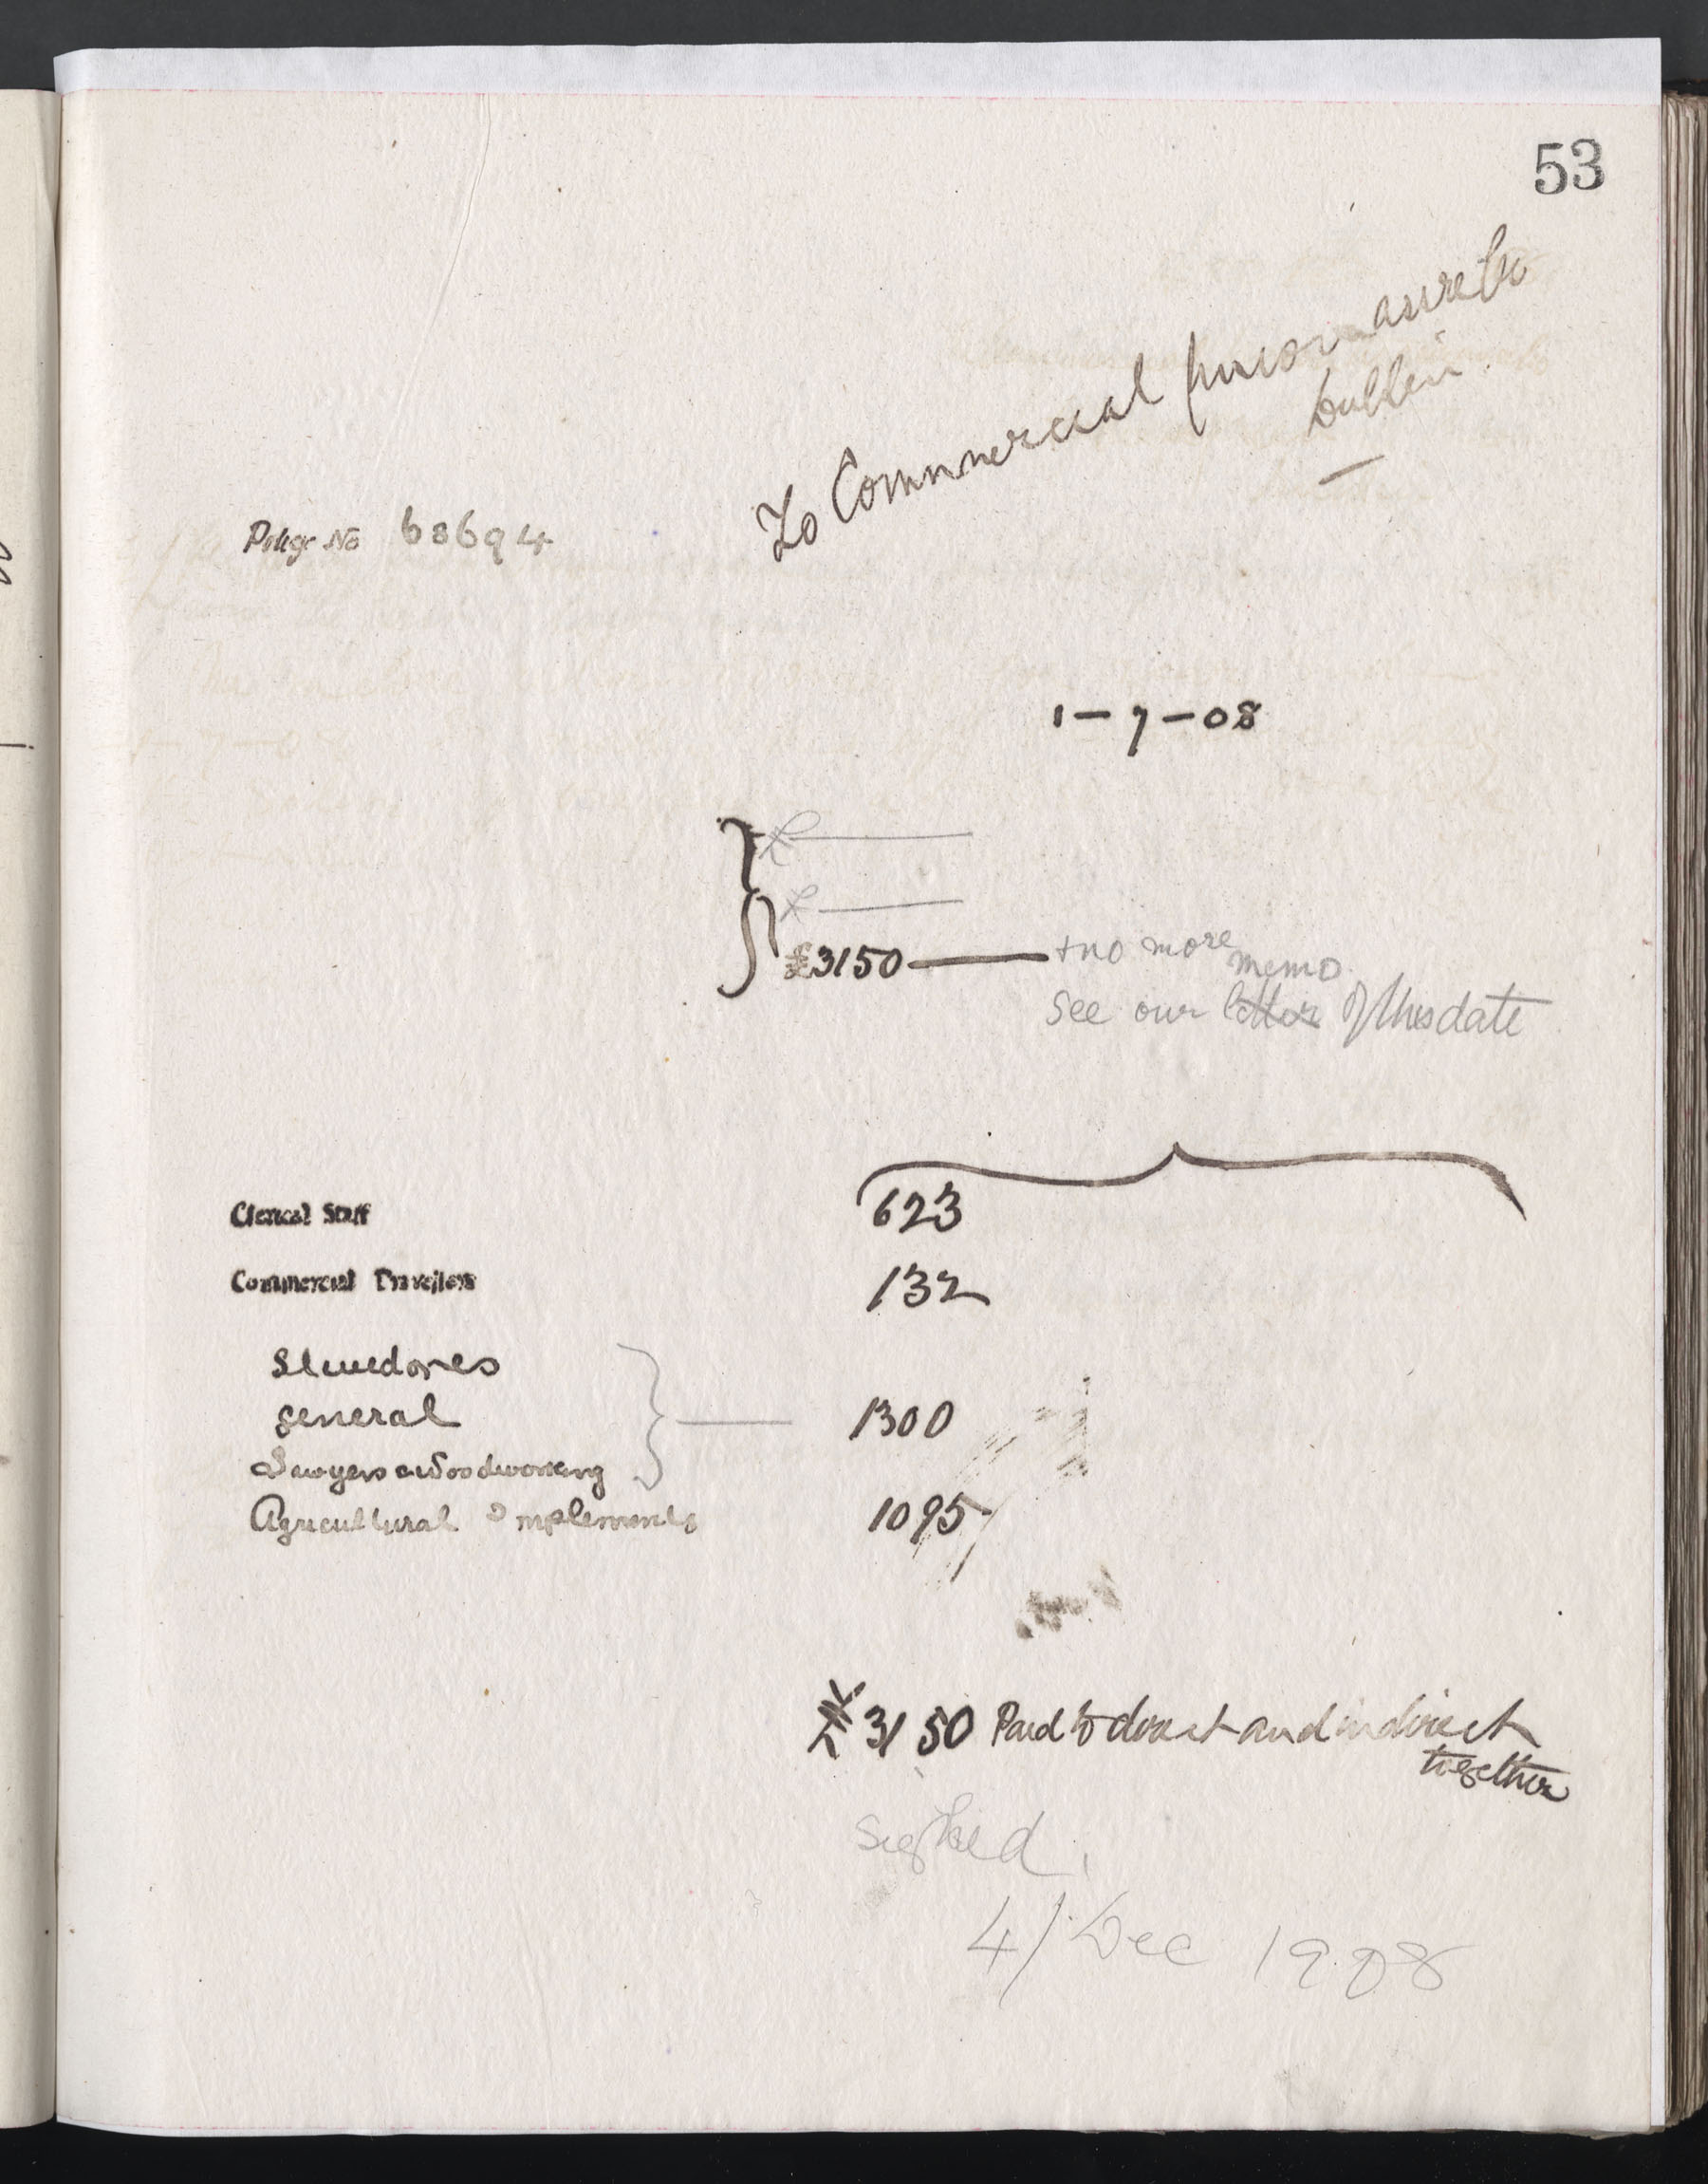 53
To Commercial Union assre Co
Dublin
Policy No 68694
1-7-08
£
£
£3150 + no more
memo
See our letter of this date
Clerical Staff 623
Commercial Travellers 132
Stevedores
general 1300
Sawyers & Woodworking
Agricultural Implements 1095
£3150 Paid to direct and indirect
together
signed.
4/Dec 1908